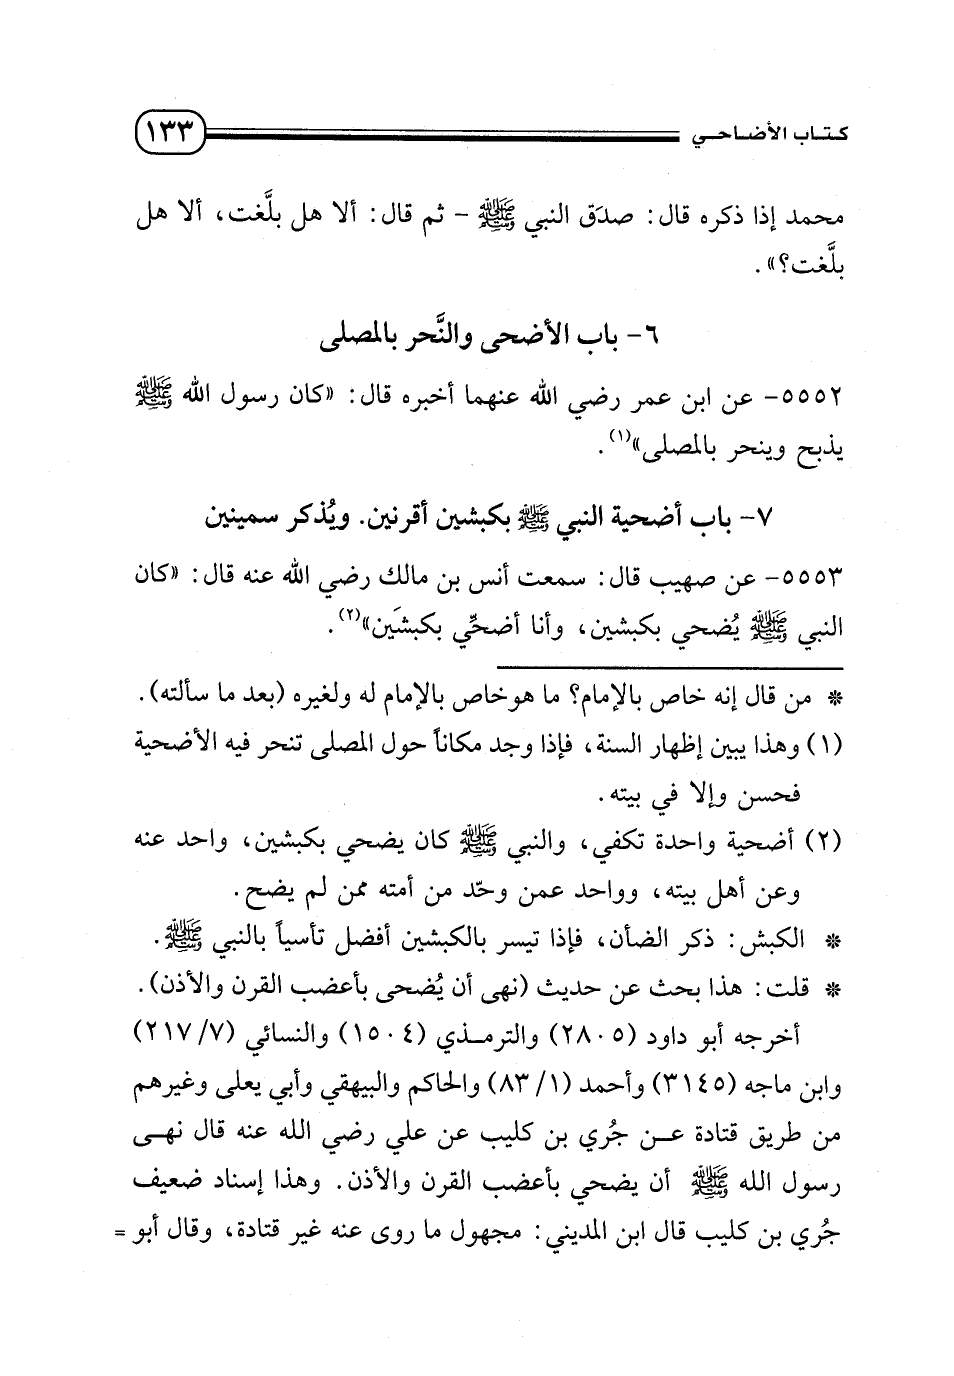 كتاب الأضاحي ١٣٣
محمد إذا ذكره قال: صدَق النبي ﷺ - ثم قال: ألا هل بلَّغت، ألا هل
بلَّغت؟».
٦- باب الأضحى والنَّحر بالمصلى
٥٥٥٢- عن ابن عمر رضي الله عنهما أخبره قال: «كان رسول الله ﷺ
يذبح وينحر بالمصلى»(١).
٧- باب أضحية النبي ﷺ بكبشين أقرنين. ويُذكر سمينين
٥٥٥٣- عن صهيب قال: سمعت أنس بن مالك رضي الله عنه قال: «كان
النبي ﷺ يُضحي بكبشين، وأنا أضحِّي بكبشَين»(٢).
* من قال إنه خاص بالإمام؟ ما هو خاص بالإمام له ولغيره (بعد ما سألته).
(١) وهذا يبين إظهار السنة، فإذا وجد مكاناً حول المصلى تنحر فيه الأضحية
فحسن وإلا في بيته.
(٢) أضحية واحدة تكفي، والنبي ﷺ كان يضحي بكبشين، واحد عنه
وعن أهل بيته، وواحد عمن وحّد من أمته ممن لم يضح.
* الكبش: ذكر الضأن، فإذا تيسر بالكبشين أفضل تأسياً بالنبي ﷺ.
* قلت: هذا بحث عن حديث (نهى أن يُضحى بأعضب القرن والأذن).
أخرجه أبو داود (٢٨٠٥) والترمذي (١٥٠٤) والنسائي (٧/ ٢١٧)
وابن ماجه (٣١٤٥) وأحمد (١/ ٨٣) والحاكم والبيهقي وأبي يعلى وغيرهم
من طريق قتادة عن جُري بن كليب عن علي رضي الله عنه قال نهى
رسول الله ﷺ أن يضحي بأعضب القرن والأذن. وهذا إسناد ضعيف
جُري بن كليب قال ابن المديني: مجهول ما روى عنه غير قتادة، وقال أبو =